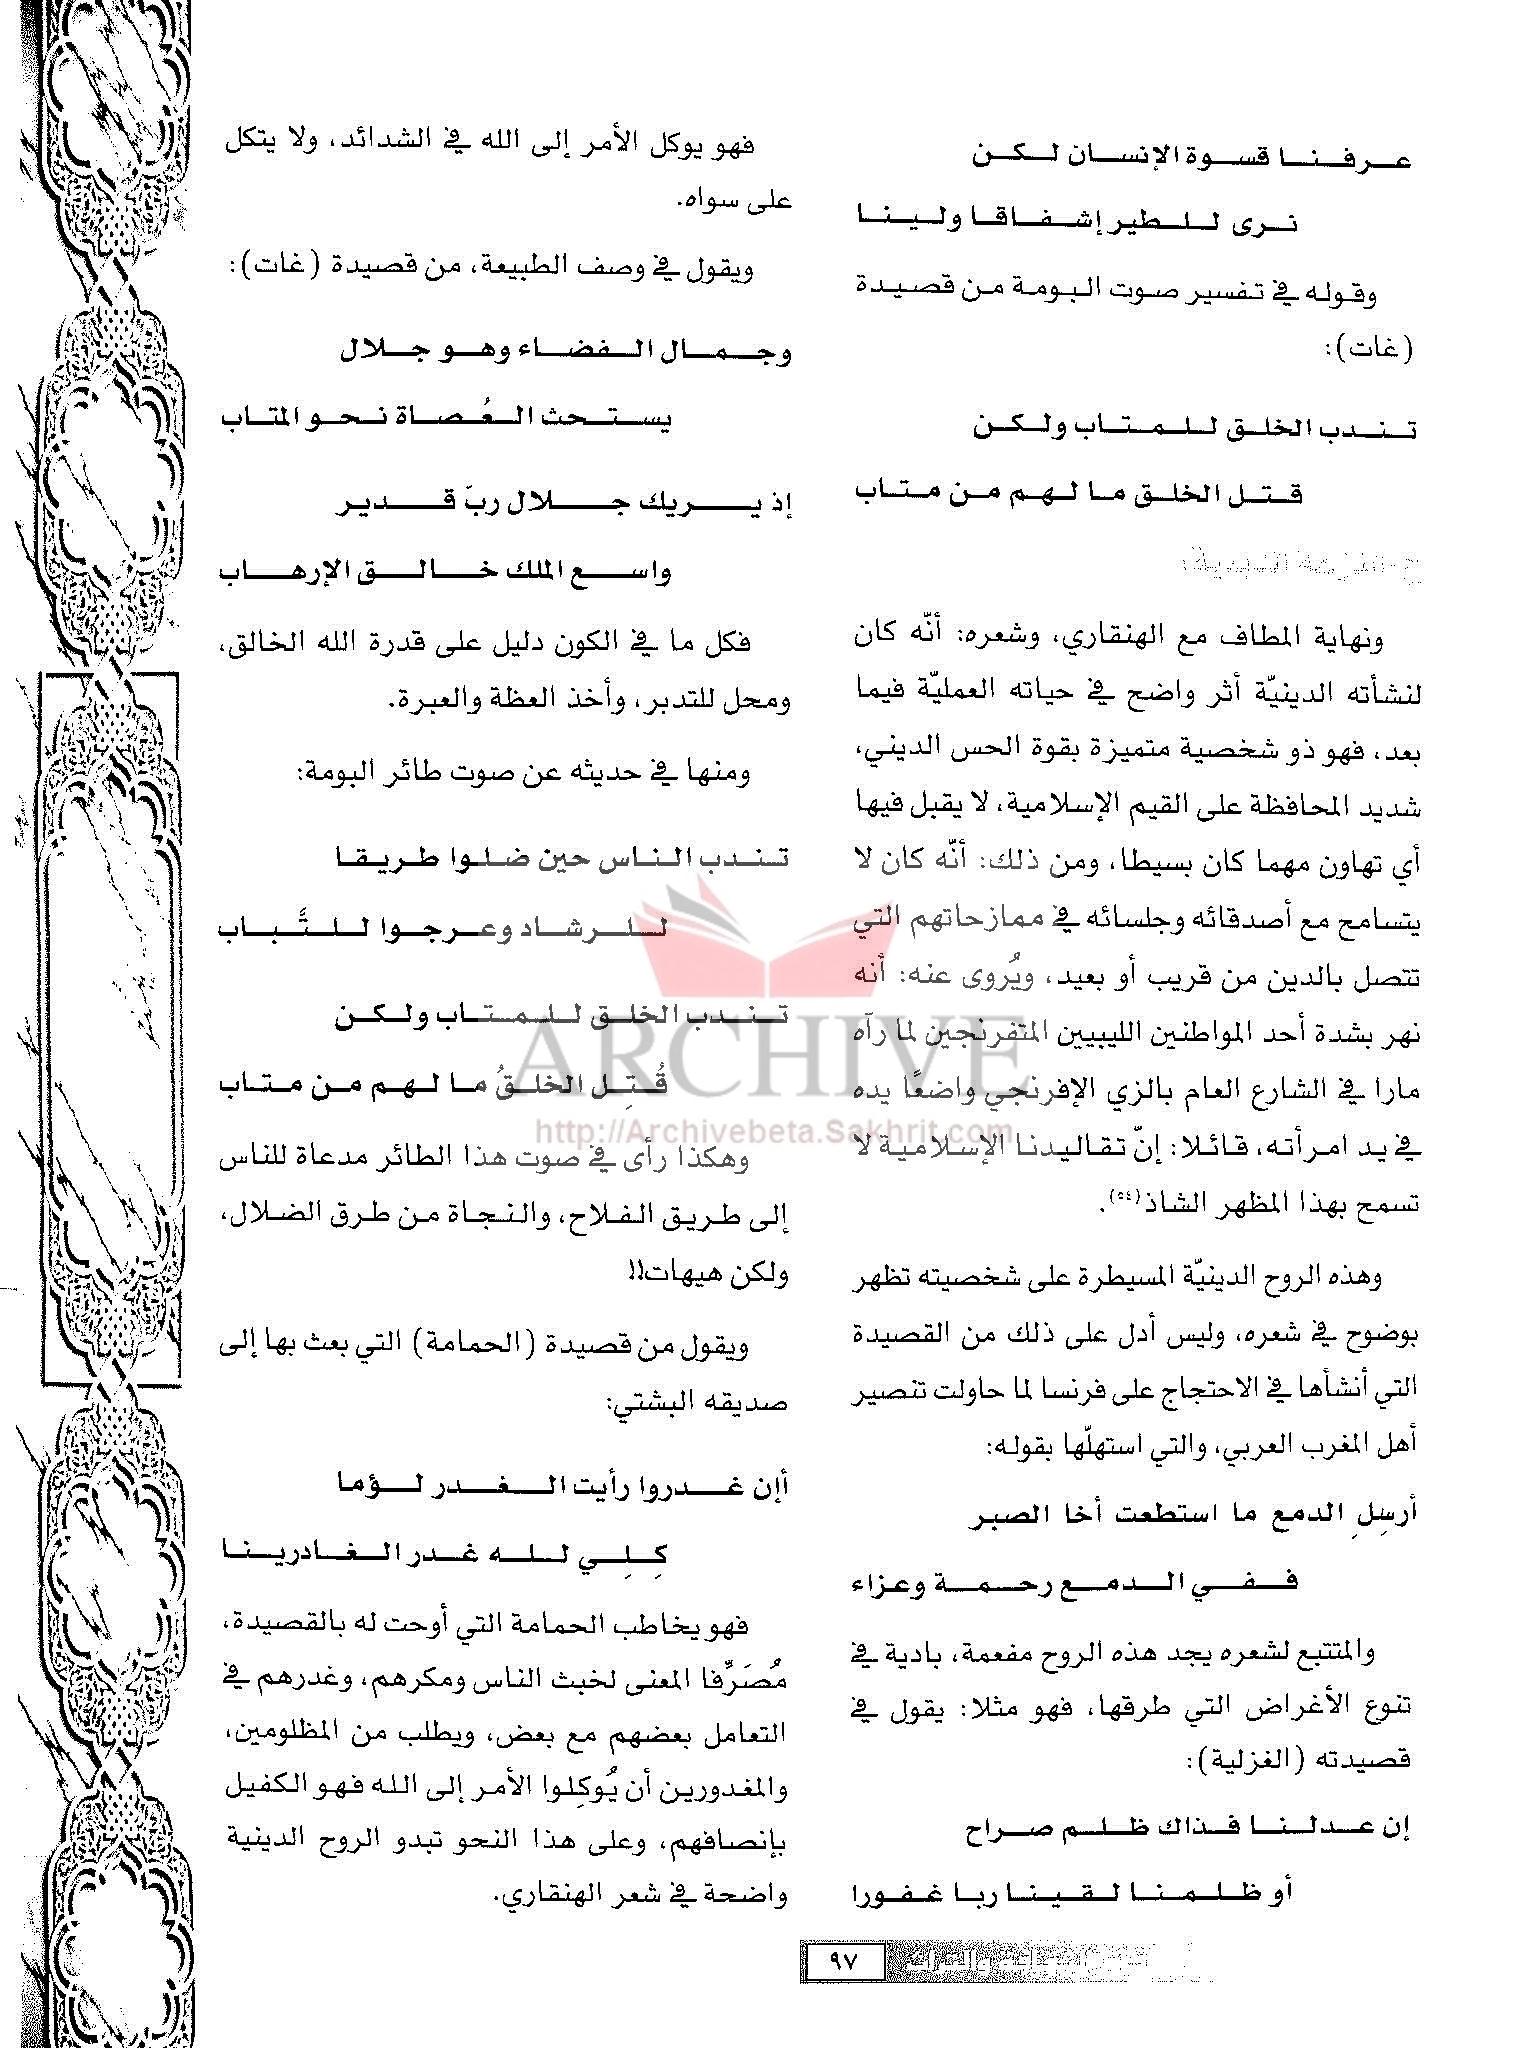 عرفنا قسوة الإنسان لكن
نرى للطير إشفاقا ولينا
وقوله في تفسير صوت البومة من قصيدة
(غات):
تندب الخلق للمتاب ولكن
قتل الخلق ما لهم من متاب
ونهاية المطاف مع الهنقاري، وشعره: أنّه كان
لنشأته الدينيّة أثر واضح في حياته العمليّة فيما
بعد، فهو ذو شخصية متميزة بقوة الحس الديني،
شديد المحافظة على القيم الإسلامية، لا يقبل فيها
أي تهاون مهما كان بسيطا، ومن ذلك: أنّه كان لا
يتسامح مع أصدقائه وجلسائه في ممازحاتهم التي
تتصل بالدين من قريب أو بعيد، ويُروى عنه: أنه
نهر بشدة أحد المواطنين الليبيين المتفرنجين لما رآه
مارا في الشارع العام بالزي الإفرنجي واضعًا يده
في يد امرأته، قائلا: إنّ تقاليدنا الإسلامية لا
تسمح بهذا المظهر الشاذ(٥٤).
وهذه الروح الدينيّة المسيطرة على شخصيته تظهر
بوضوح في شعره، وليس أدل على ذلك من القصيدة
التي أنشأها في الاحتجاج على فرنسا لما حاولت تنصير
أهل المغرب العربي، والتي استهلّها بقوله:
أرسِلِ الدمع ما استطعت أخا الصبر
ففي الدمع رحمة وعزاء
والمتتبع لشعره يجد هذه الروح مفعمة، بادية في
تنوع الأغراض التي طرقها، فهو مثلا: يقول في
قصيدته (الغزلية):
إن عدلنا فذاك ظلم صراح
أو ظلمنا لقينا ربا غفورا
فهو يوكل الأمر إلى الله في الشدائد، ولا يتكل
على سواه.
ويقول في وصف الطبيعة، من قصيدة (غات):
وجمال الفضاء وهو جلال
يستحث العُصاة نحو المتاب
إذ يريك جلال ربّ قدير
واسع الملك خالق الإرهاب
فكل ما في الكون دليل على قدرة الله الخالق،
ومحل للتدبر، وأخذ العظة والعبرة.
ومنها في حديثه عن صوت طائر البومة:
تندب الناس حين ضلوا طريقا
للرشاد وعرجوا للتَّباب
تندب الخلق للمتاب ولكن
قُتِل الخلقُ ما لهم من متاب
وهكذا رأى في صوت هذا الطائر مدعاة للناس
إلى طريق الفلاح، والنجاة من طرق الضلال،
ولكن هيهات!!
ويقول من قصيدة (الحمامة) التي بعث بها إلى
صديقه البشتي:
أإن غدروا رأيت الغدر لؤما
كِلِي لله غدر الغادرينا
فهو يخاطب الحمامة التي أوحت له بالقصيدة،
مُصَرِّفا المعنى لخبث الناس ومكرهم، وغدرهم في
التعامل بعضهم مع بعض، ويطلب من المظلومين،
والمغدورين أن يُوكِلوا الأمر إلى الله فهو الكفيل
بإنصافهم، وعلى هذا النحو تبدو الروح الدينية
واضحة في شعر الهنقاري.
ARCHIVE
http://Archivebeta.Sakhrit.com
٩٧